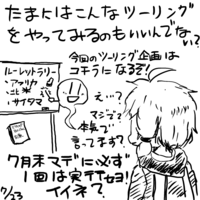 たまにはこんなツーリング
をやってみるのもいいんでない?
今回のツーリング企画は
コチラになります!
ルーレットラリー
・アメリカ
・北米
・サイタマ
え…?
マジで?
本気で
言ってます?
7月末マデに必ず
1回は実行せヨ!
イイネ?
7/23